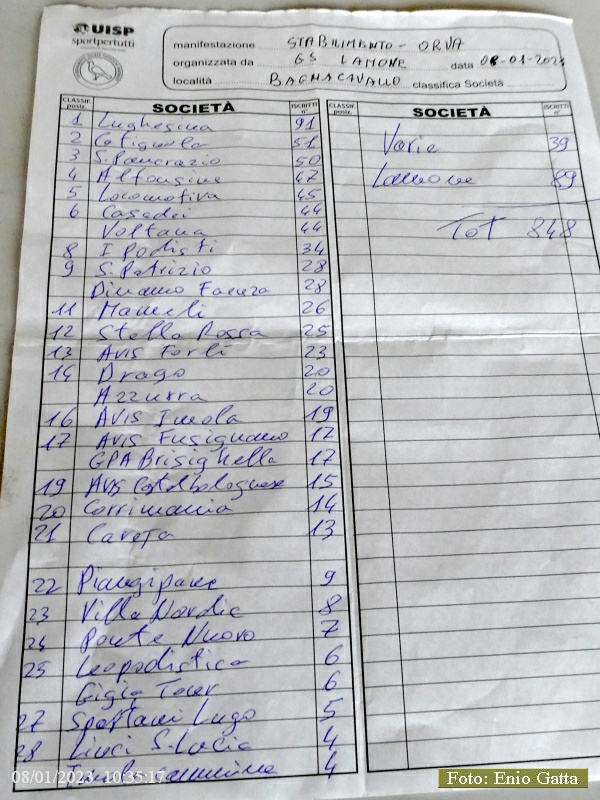 UISP
sportpertutti
manifestazione STABILIMENTO - ORVA
organizzata da GS LAMONE data 08-01-2023
località BAGNACAVALLO classifica Società
CLASSIF. SOCIETÀ ISCRITTI n°
1 Lughesina 91
2 Cotignola 51
3 S. Pancrazio 50
4 Alfonsine 47
5 Locomotiva 45
6 Casadei 44
Voltana 44
8 I Podisti 34
9 S. Patrizio 28
Dinamo Faenza 28
11 Mameli 26
12 Stella Rossa 25
13 Avis Forlì 23
14 Drago 20
Azzurra 20
16 AVIS Imola 19
17 AVIS Fusignano 17
GPA Brisighella 17
19 Avis Castelbolognese 15
20 Corrimania 14
21 Caveja 13
22 Piangipane 9
23 Villa Nordic 8
24 Ponte Nuovo 7
25 Leopodistica 6
Gigia Tour 6
27 Spartani Lugo 5
28 Linci S. Lucia 4
4
CLASSIF. SOCIETÀ ISCRITTI n°
Varie 39
Lamone 89
Tot 848
08/01/2023 10:35:17
Foto: Enio Gatta